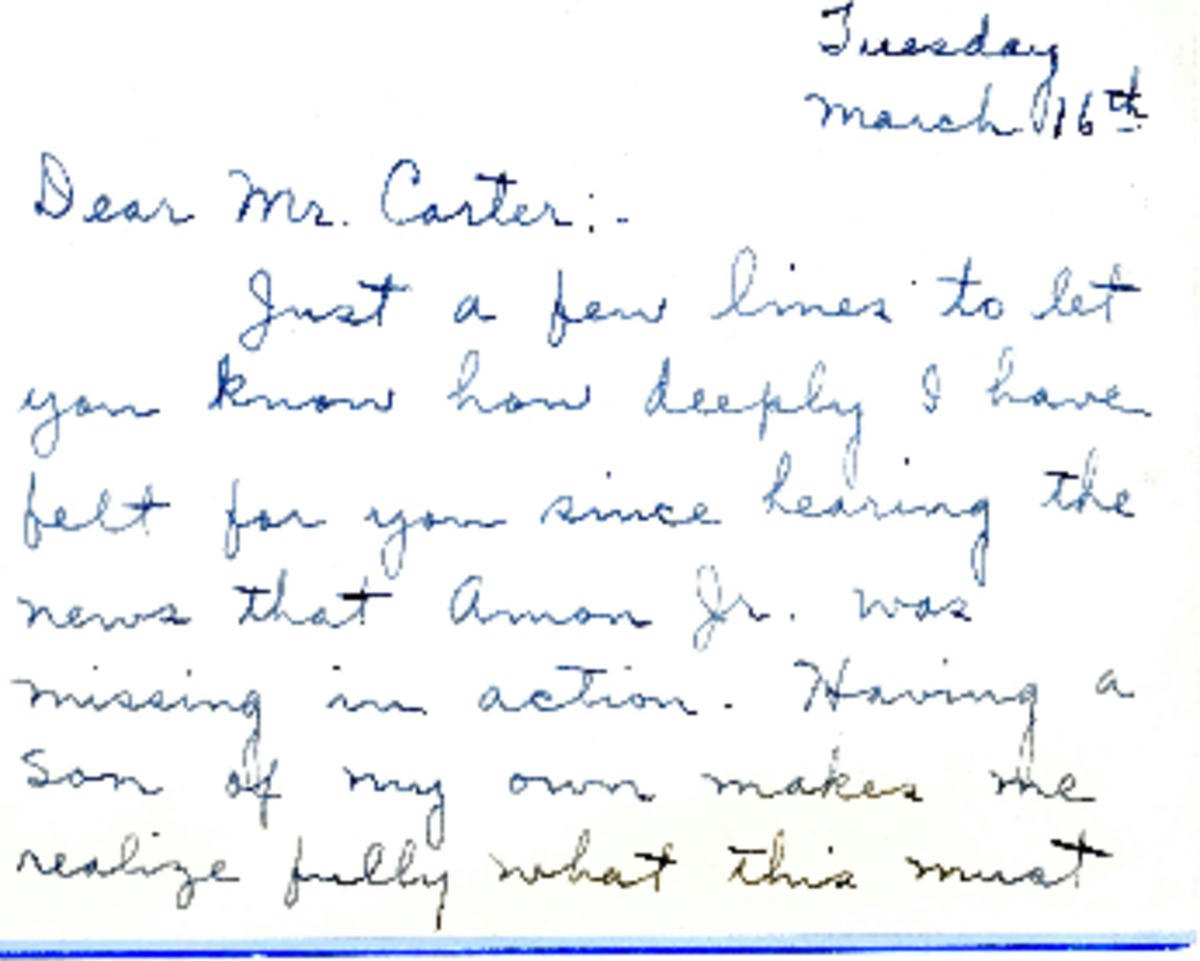 Tuesday
March 16th
Dear Mr. Carter:-
Just a few lines to let
you know how deeply I have
felt for you since hearing the
news that Amon Jr. was
missing in action. Having a
son of my own makes me
realize fully what this must